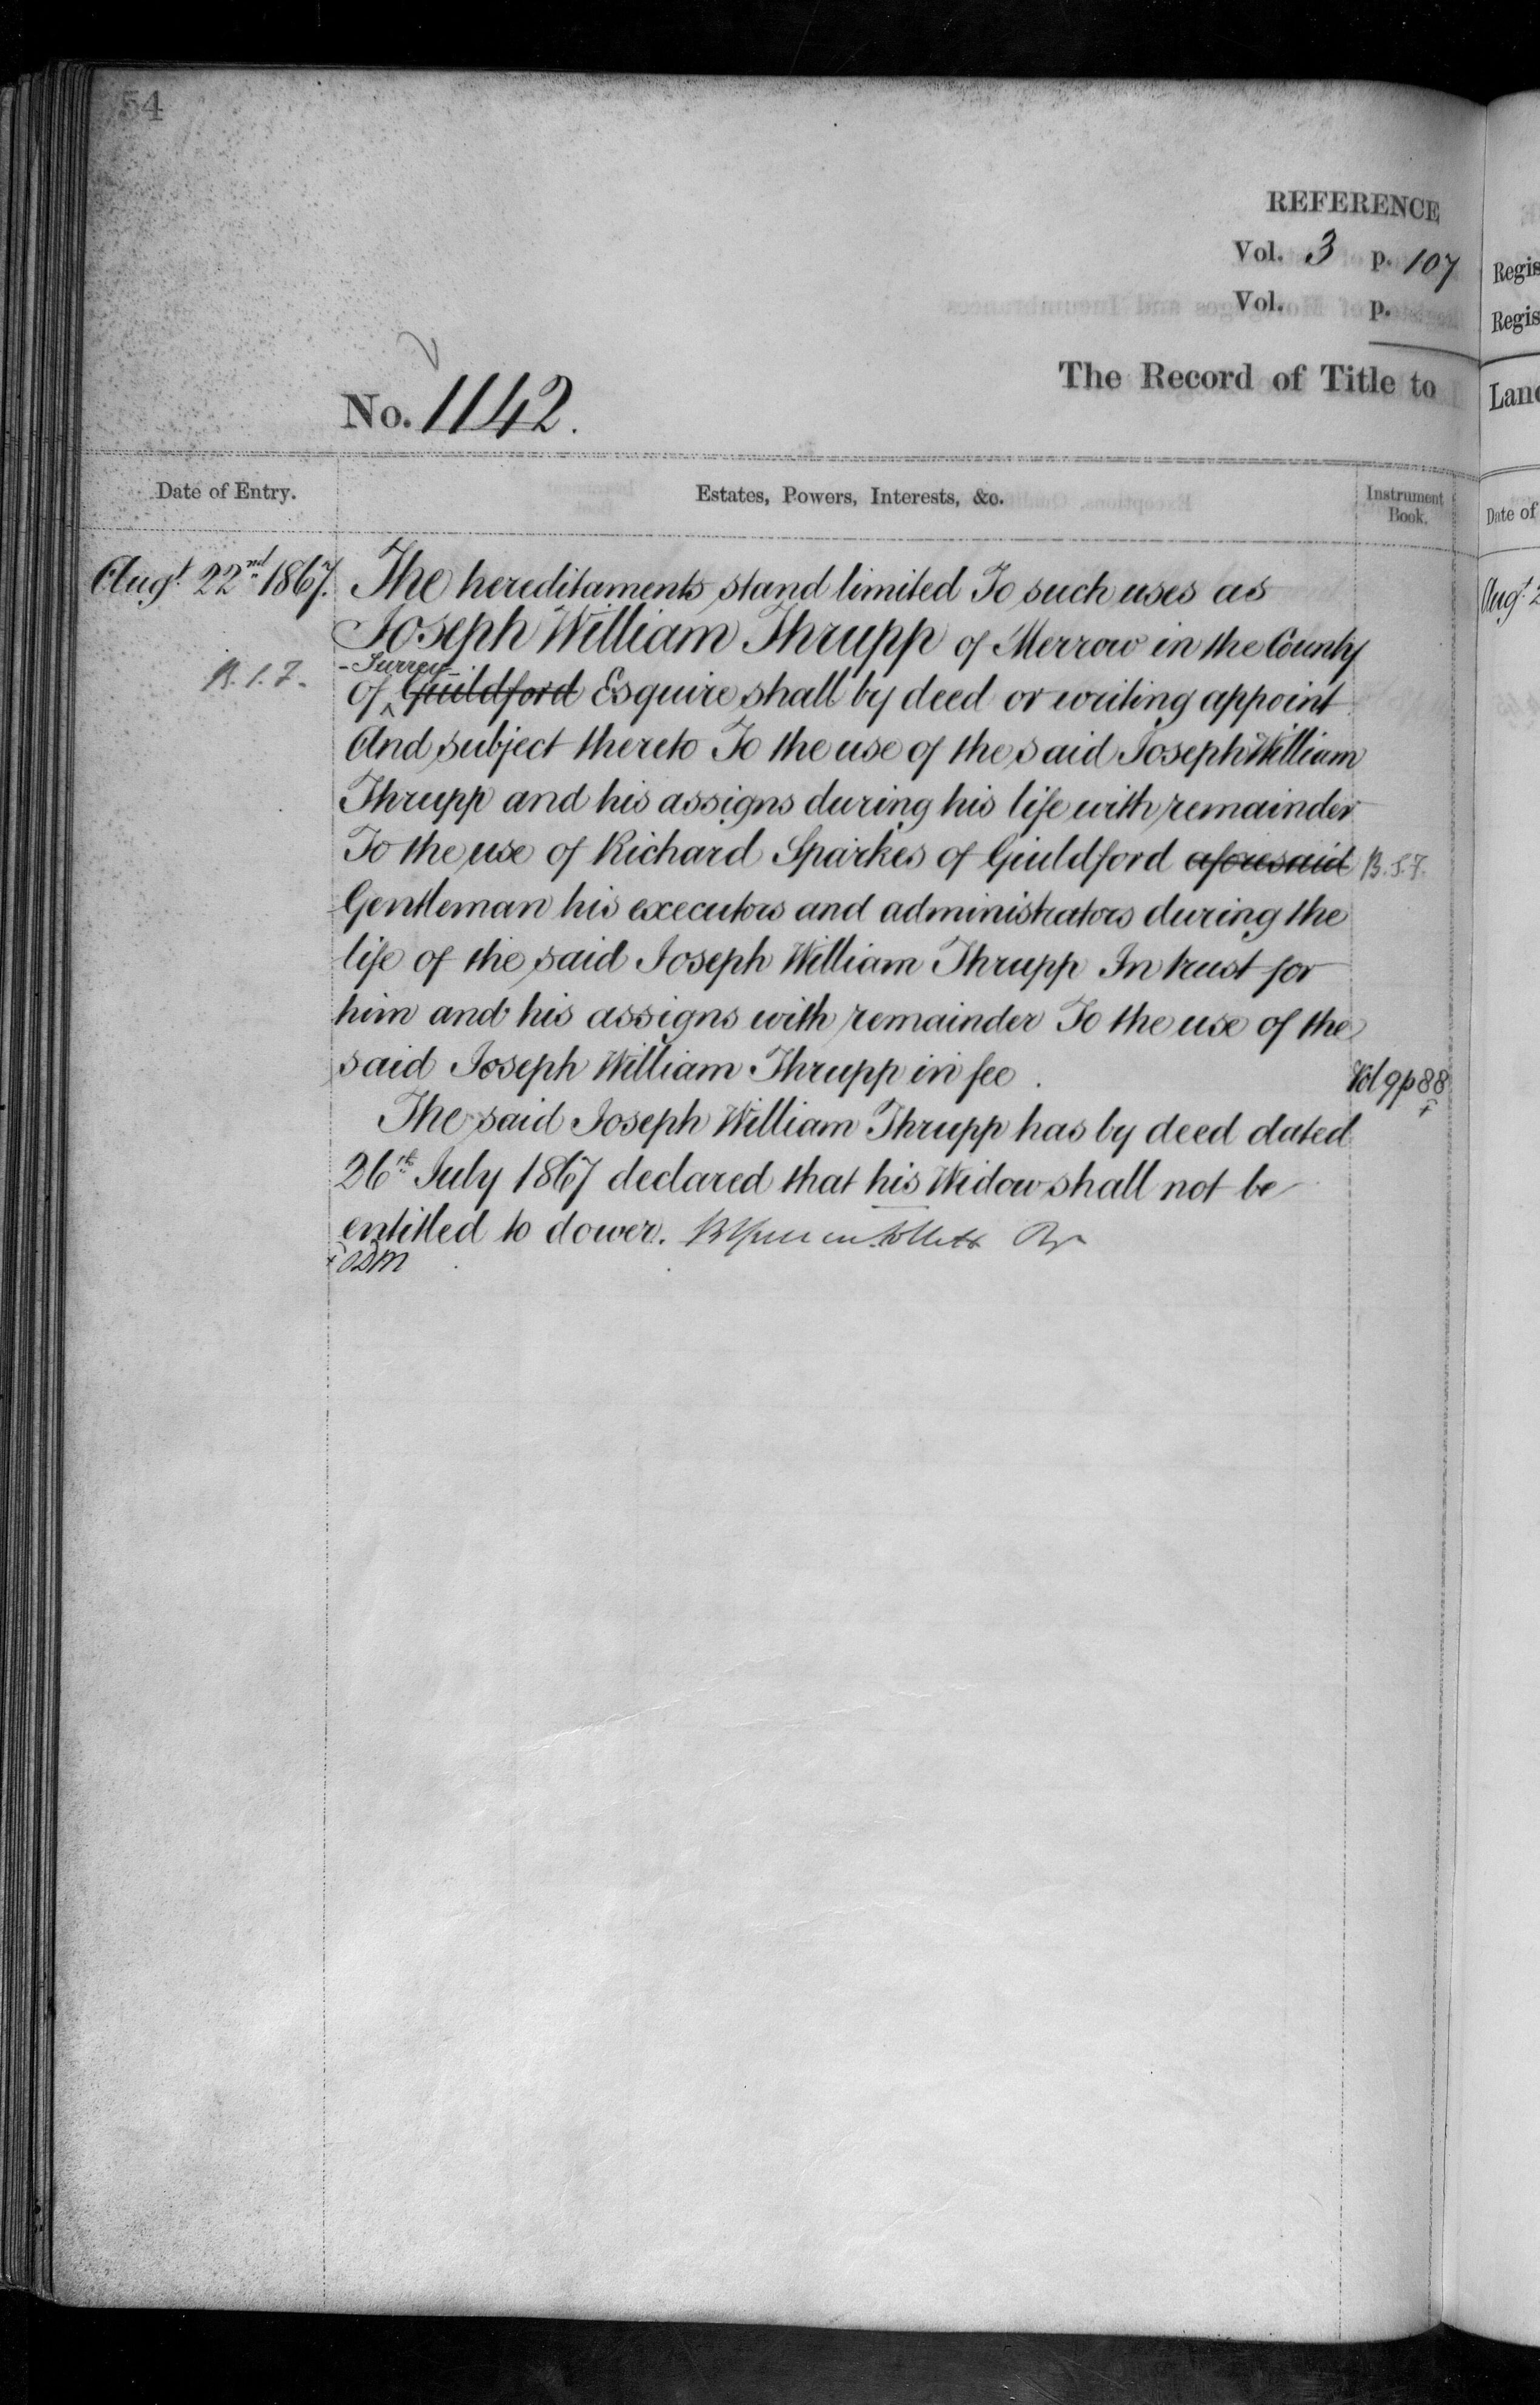 54
REFERENCE
Vol. 3 p. 107
Vol. p.
The Record of Title to
No. 1142.
Date of Entry.
Estates, Powers, Interests, &c.
Instrument
Book.
Augt. 22nd 1867.
The hereditaments stand limited To such uses as
Joseph William Thrupp of Merrow in the County
- Surrey -
of Guildford Esquire shall by deed or writing appoint
And subject thereto To the use of the said Joseph William
Thrupp and his assigns during his life with remainder
To the use of Richard Sparkes of Guildford aforesaid
Gentleman his executors and administrators during the
life of the said Joseph William Thrupp In trust for
him and his assigns with remainder To the use of the
said Joseph William Thrupp in fee.
Vol 9 p 88
The said Joseph William Thrupp has by deed dated
26th July 1867 declared that his Widow shall not be
entitled to dower.
Regis
Regis
Land
Date of
Augt. 2